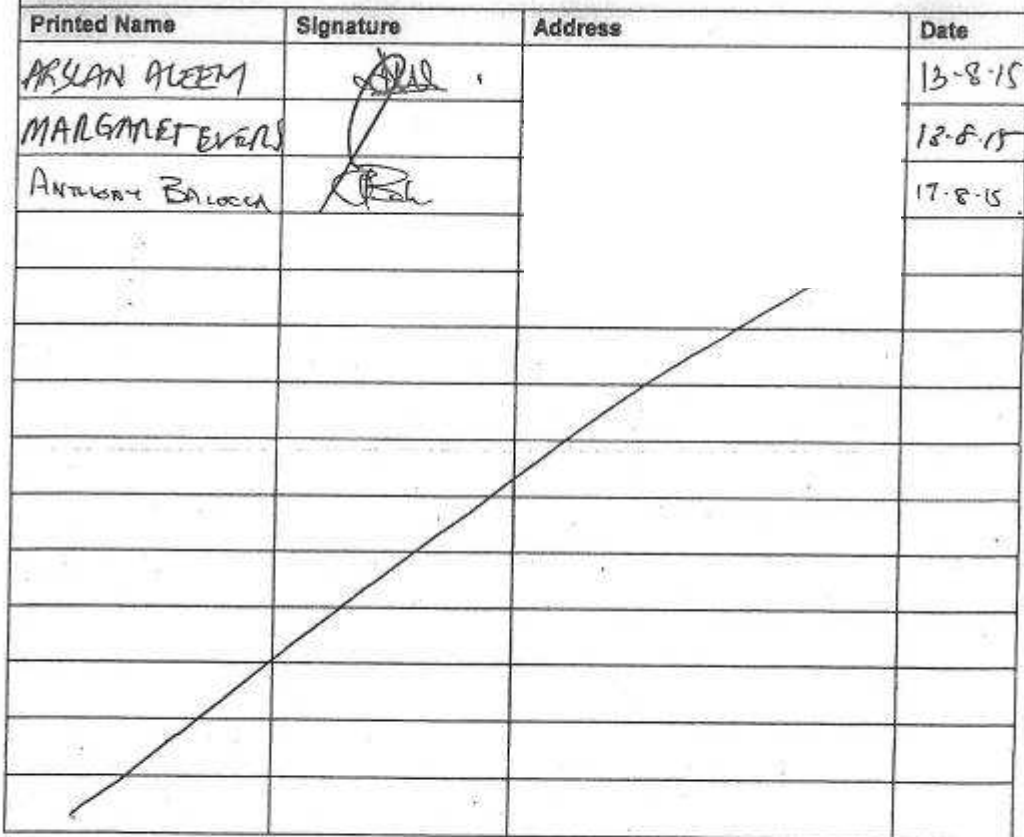 Printed Name Signature Address Date
ARSLAN ALEEM 13-8-15
MARGARET EVERS 13-8-15
ANTHONY 17-8-15